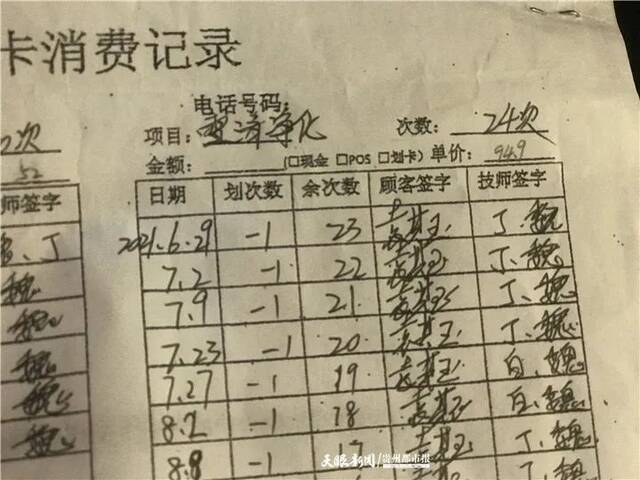 卡消费记录
电话号码:
次
项目: 净化 次数: 24次
52
金额: (□现金 □POS □划卡) 单价: 949
师签字
日期 划次数 余次数 顾客签字 技师签字
、丁
2021.6.29 -1 23 丁、魏
魏
7.2 -1 22 丁、魏
魏
7.9 -1 21 丁、魏
魏
7.23 -1 20 丁、魏
魏
7.27 -1 19 白、魏
魏
8.2 -1 18 白、魏
魏
8.8 -1 17 丁、魏
天眼新闻/贵州都市报